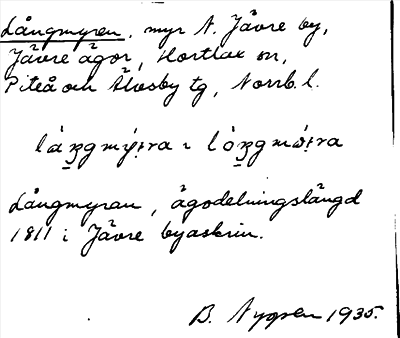 Långmyren, myr N. Jävre by,
Jävre ägor, Hortlax sn,
Piteå och Älvsby tg, Norrb. l.
Långmyran, ägodelningslängd
1811 i Jävre byaskrin.
B. Nygren 1935.